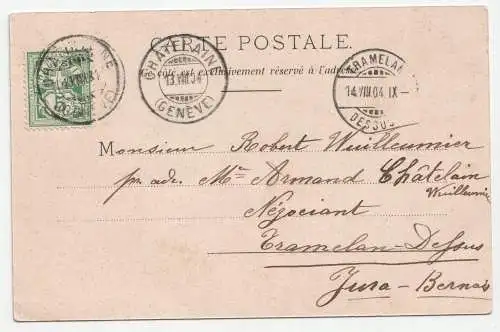 CARTE POSTALE.
Côté exclusivement réservé à l'adresse
CHATELAINE
13.VIII.04
(GENÈVE)
TRAMELAN
14.VIII.04.IX
DESSUS
Monsieur Robert Wuilleumier
par adr. Mr Armand Châtelain
Wuilleumier
Négociant
Tramelan-Dessus
Jura-Bernois